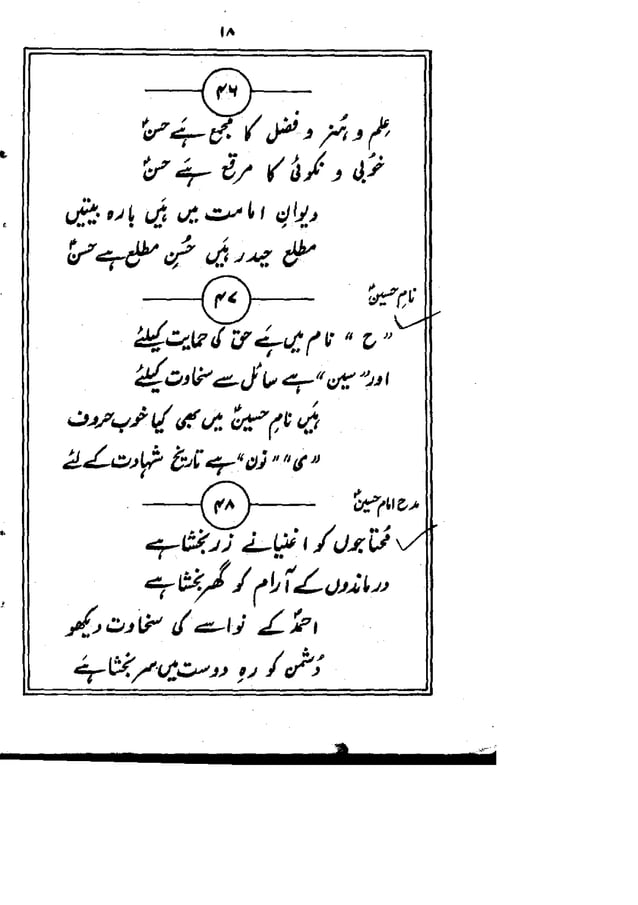 ۱۸
۴۶
عِلم و ہُنر و فضل کا مجمع ہَے حسنؑ
خُوبی و نکوئی کا مرقع ہَے حسنؑ
دیوانِ امامت میں ہَیں بارہ بیتیں
مطلع حیدر ہَیں حُسنِ مطلع ہے حسنؑ
۴۷
نامِ حسینؑ
"ح" نام میں ہَے حق کی حمایت کیلئے
اور "سین" ہے سائل سے سخاوت کیلئے
ہَیں نامِ حسینؑ میں بھی کیا خوب حروف
"ی" "نون" ہے تاریخِ شہادت کے لئے
۴۸
مدح امام حسینؑ
مُحتاجوں کو اغنیا نے زر بخشا ہے
درماندوں کے آرام کو گھر بخشا ہے
احمدؐ کے نواسے کی سخاوت دیکھو
دُشمن کو رہِ دوست میں سر بخشا ہَے